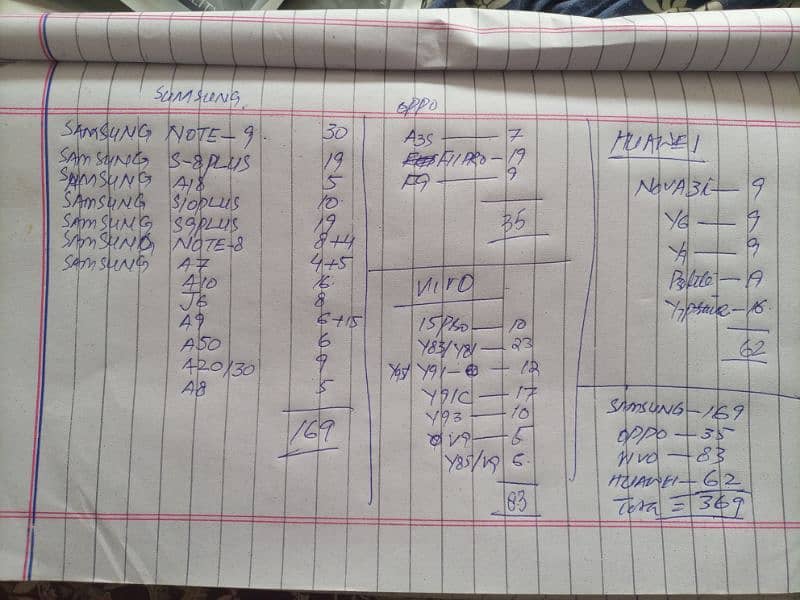 SAMSUNG.
SAMSUNG NOTE-9 30
SAMSUNG S-8PLUS 19
SAMSUNG A18 5
SAMSUNG S10PLUS 10.
SAMSUNG S9PLUS 19
SAMSUNG NOTE-8 8+4
SAMSUNG A7 4+5
A10 16.
J6 8
A9 6+15
A50 6
A20/30 9
A8 5
169
OPPO
A3S — 7
F11PRO — 19
F9 — 9
35
VIVO
15PRO — 10
Y83/Y81 — 23
Y91 — 12
Y91C — 17
Y93 — 10
V9 — 5
Y85/V9 6.
83
HUAWEI
NOVA3i — 9
Y6 — 9
9
P3lite — 19
16.
62
SAMSUNG — 169
OPPO — 35
VIVO — 83
HUAWEI — 62
Total = 369